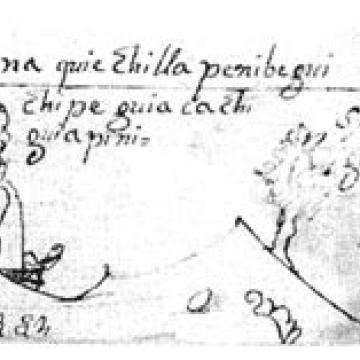 na quie chilla penibegui
chi pe guia cachi
guiapini=